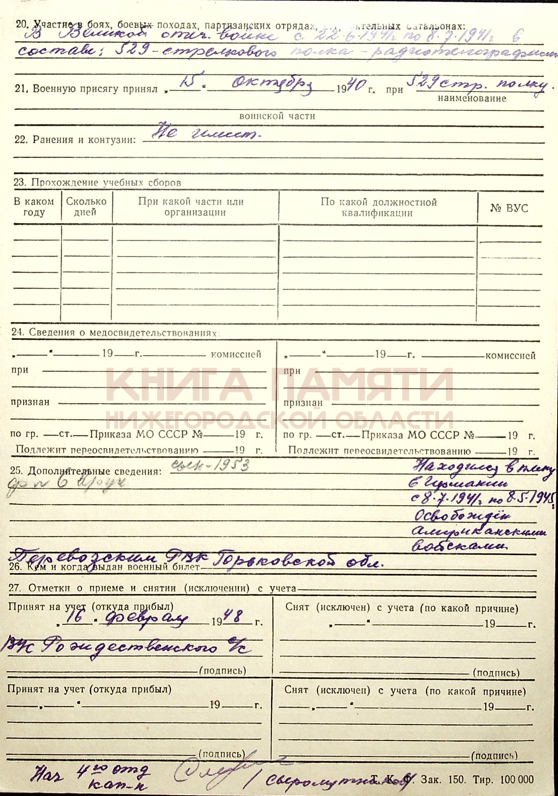 20. Участие в боях, боевых походах, партизанских отрядах, батальонах:
В Великой отеч. войне с 22-6-1941г по 8.7-1941г в
составе: 529-стрелкового полка-радиотелеграфист
21. Военную присягу принял „15“ октября 1940 г. при 529 стр. полку.
наименование
воинской части
22. Ранения и контузии: Не имеет.
23. Прохождение учебных сборов
В каком году Сколько дней При какой части или организации По какой должностной квалификации № ВУС
24. Сведения о медосвидетельствованиях:
„ — “ 19 — г. комиссией „ — “ 19 — г. комиссией
при при
КНИГА ПАМЯТИ
признан признан
НИЖЕГОРОДСКОЙ ОБЛАСТИ
по гр. — ст. — Приказа МО СССР № — 19 г. по гр. — ст. — Приказа МО СССР № — 19 г.
Подлежит переосвидетельствованию — 19 г. Подлежит переосвидетельствованию — 19 г.
25. Дополнительные сведения: сын-1953
Находился в плену
в Германии
с 8-7-1941г по 8.5-1945г
Освобождён
американскими
войсками.
Перевозским РВК Горьковской обл.
26. Кем и когда выдан военный билет
27. Отметки о приеме и снятии (исключении) с учета
Принят на учет (откуда прибыл) Снят (исключен) с учета (по какой причине)
„16“ февраля 1948 г. „ — “ 19 — г.
Рождественского с/с
(подпись) (подпись)
Принят на учет (откуда прибыл) Снят (исключен) с учета (по какой причине)
„ — “ 19 — г. „ — “ 19 — г.
(подпись) (подпись)
Нач 4го отд
кап-н /Сыромятников/
Т. К. Ф. Зак. 150. Тир. 100 000